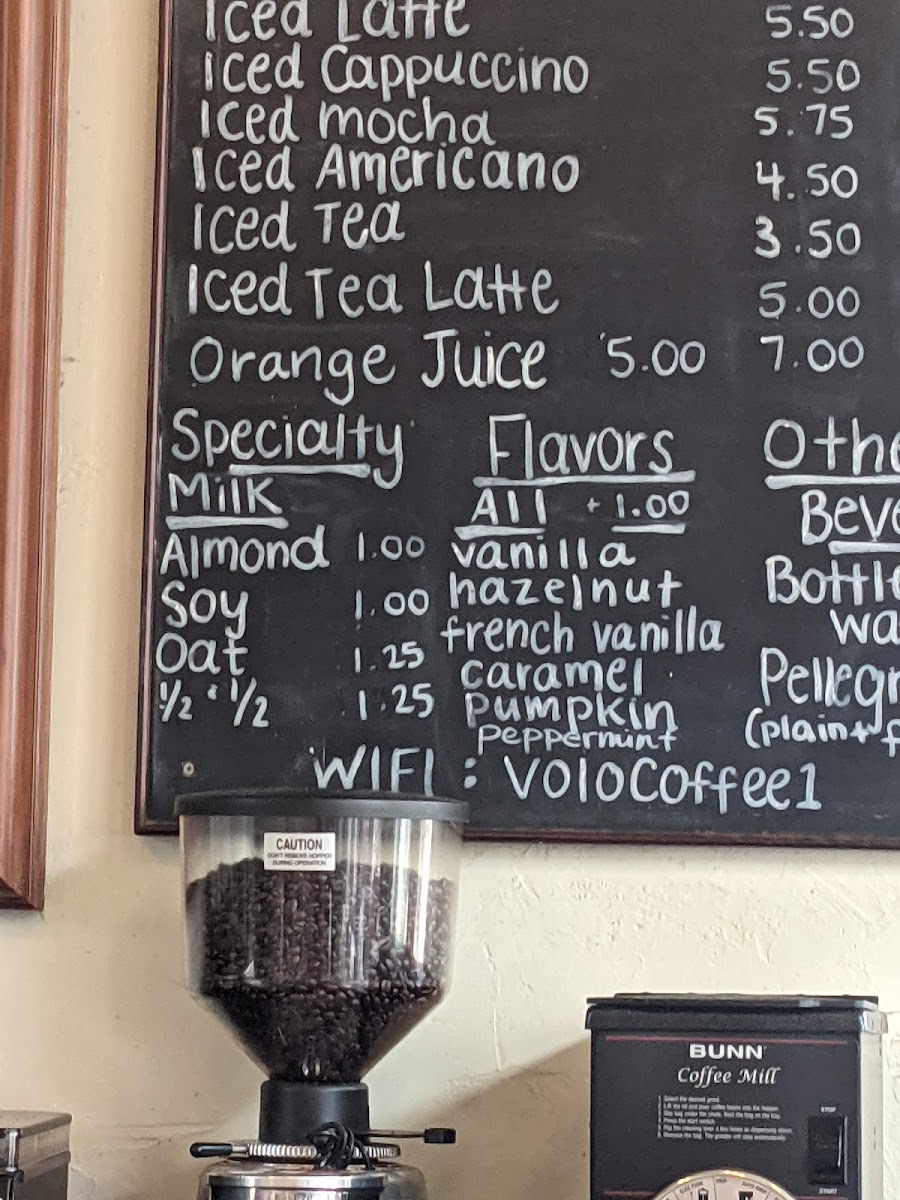 Iced Latte 5.50
Iced Cappuccino 5.50
Iced mocha 5.75
Iced Americano 4.50
Iced Tea 3.50
Iced Tea Latte 5.00
Orange Juice 5.00 7.00
Specialty
Milk
Almond 1.00
Soy 1.00
Oat 1.25
1/2 & 1/2 1.25
Flavors
All + 1.00
vanilla
hazelnut
french vanilla
caramel
pumpkin
peppermint
Othe
Beve
Bottle
wa
Pellegr
(plain + f
WIFI : VoloCoffee1
CAUTION
DON'T REMOVE HOPPER
DURING OPERATION
BUNN
Coffee Mill
STOP
START